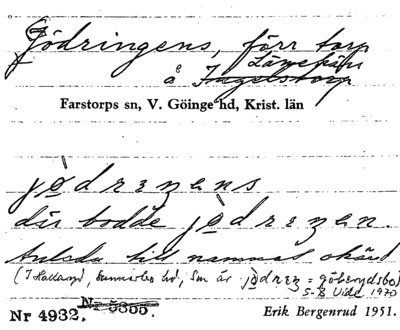 Jödringens, förr torp
Lönshfur
å Ingelstorp
Farstorps sn, V. Göinge hd, Krist. län
jødrɪŋens
där bodde jødrɪŋen.
till namnet okänd
(I Halland, hd, Sm är jødrɪŋ = göberydsbo)
S-B Vide 1970
Nr 4932. Nr 5355.
Erik Bergenrud 1951.